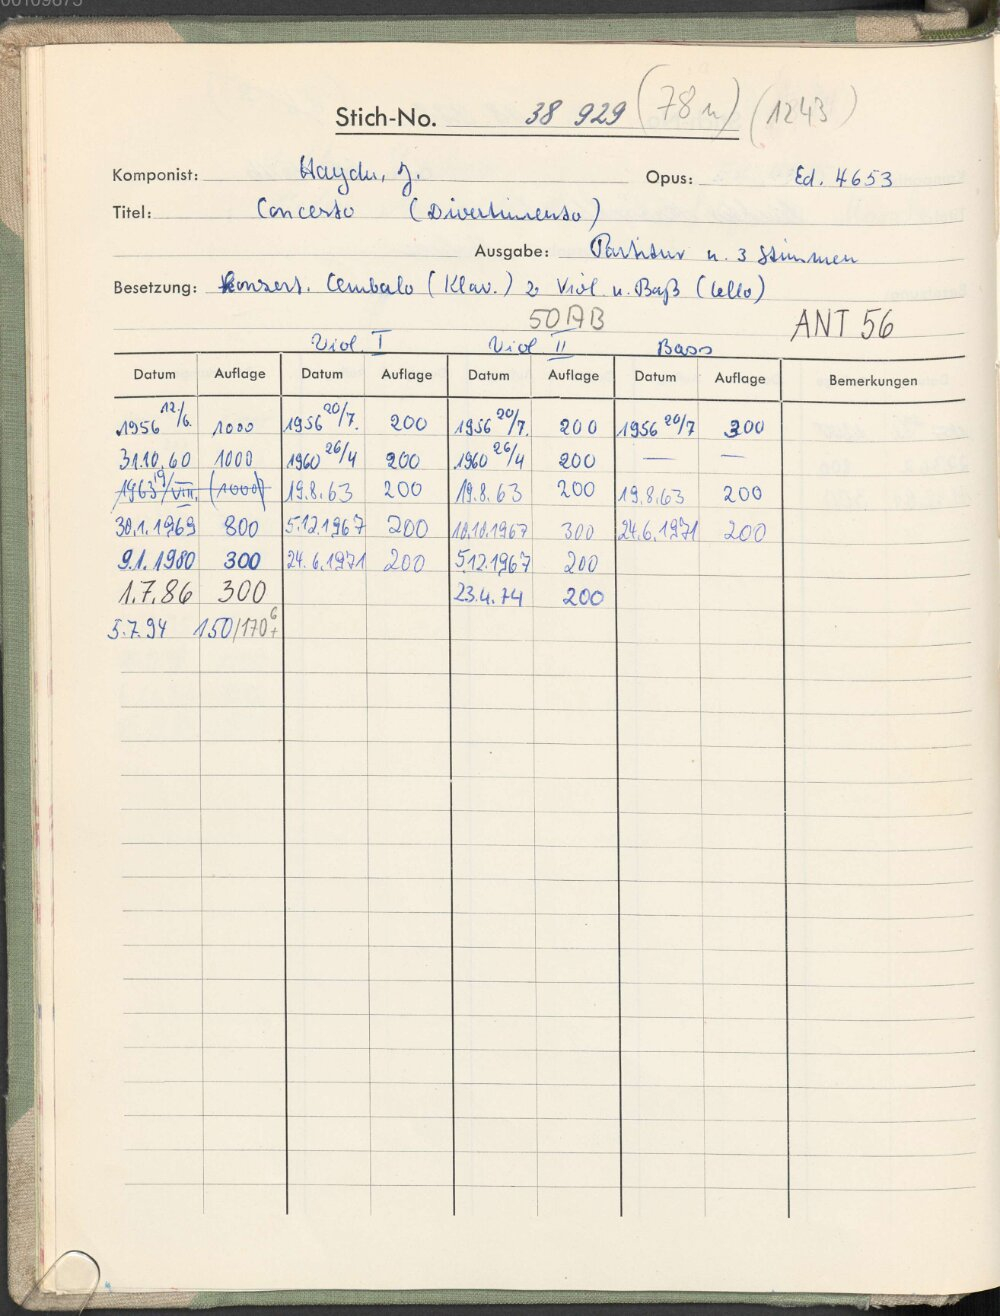 Stich-No. 38 929 (78 n) (1243)
Komponist: Haydn, J. Opus: Ed. 4653
Titel: Concerto (Divertimento)
Ausgabe: Partitur u. 3 Stimmen
Besetzung: Konzert. Cembalo (Klav.) 2 Viol. u. Baß (Cello)
50 AB ANT 56
Viol. I Viol II Bass
Datum Auflage Datum Auflage Datum Auflage Datum Auflage Bemerkungen
1956 12./6. 1000 1956 20/7. 200 1956 20/7. 200 1956 20/7 300
31.10.60 1000 1960 26/4 200 1960 26/4 200 — —
1963 19/VIII. (1000) 19.8.63 200 19.8.63 200 19.8.63 200
30.1.1969 800 5.12.1967 200 10.10.1967 300 24.6.1971 200
9.1.1980 300 24.6.1971 200 5.12.1967 200
1.7.86 300 23.4.74 200
5.7.94 150/170